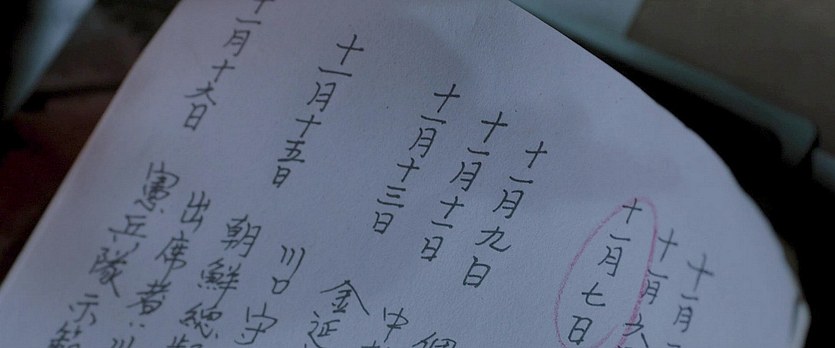 十一月
十一月六
十一月七日
十一月九日
十一月十一日
中
十一月十三日
金延
十一月十五日 川口守
朝鮮總
出席者:川
十一月十六日 憲兵隊 示範